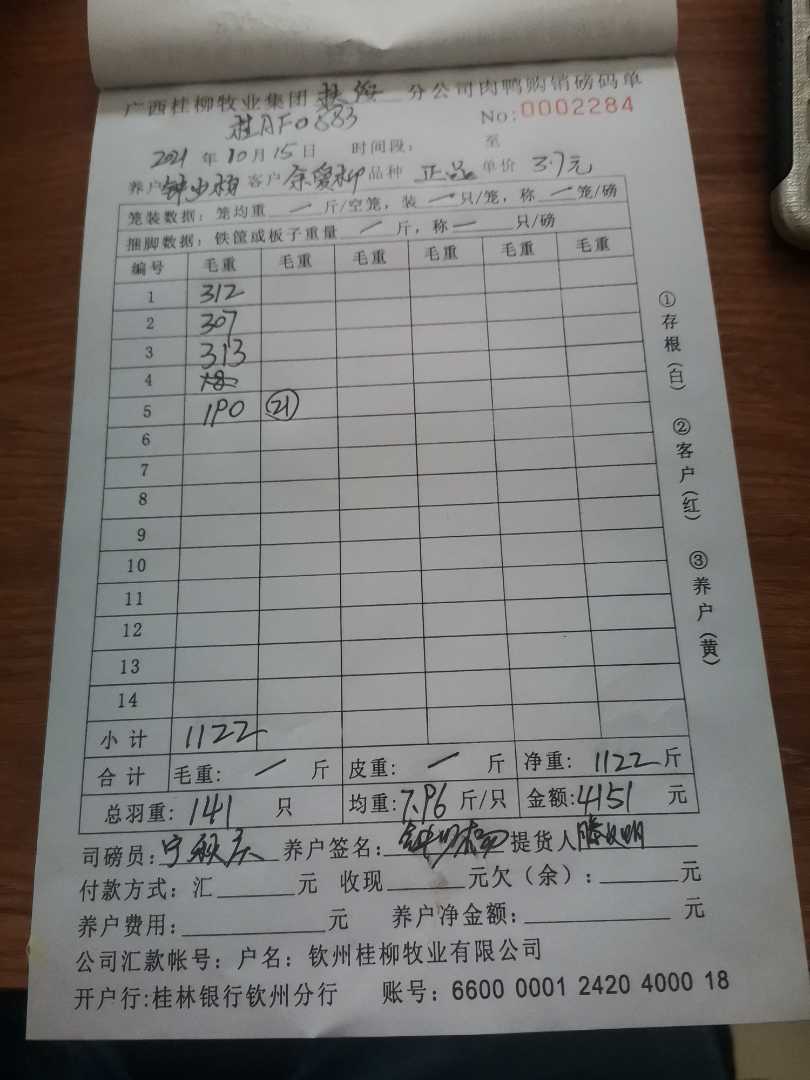 广西桂柳牧业集团 钦海 分公司肉鸭购销磅码单
桂AF0583 No:0002284
2021年10月15日 时间段: 至
养户 客户 余爱柳 品种 正品 单价 3.7元
笼装数据:笼均重 一 斤/空笼,装 一 只/笼,称 一 笼/磅
捆脚数据:铁筐或板子重量 一 斤,称 一 只/磅
编号 毛重 毛重 毛重 毛重 毛重 毛重
1 312
2 307
3 313
4
5 190 ㉑
6
7
8
9
10
11
12
13
14
小计 1122
合计 毛重: 一 斤 皮重: 一 斤 净重: 1122斤
总羽重: 141 只 均重:7.96 斤/只 金额:4151 元
司磅员: 养户签名: 提货人
付款方式:汇 元 收现 元欠(余): 元
养户费用: 元 养户净金额: 元
公司汇款帐号:户名:钦州桂柳牧业有限公司
开户行:桂林银行钦州分行 账号:6600 0001 2420 4000 18
①存根(白) ②客户(红) ③养户(黄)